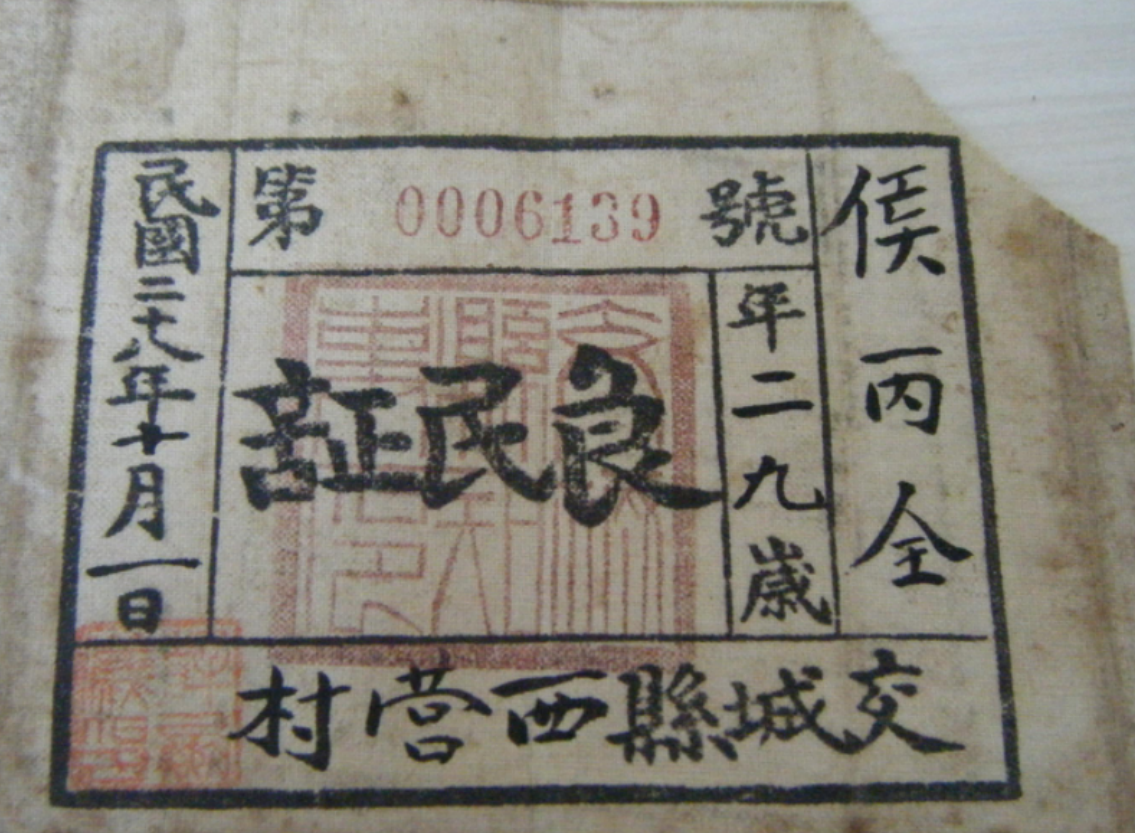 侯丙全
年二九歳
第 0006139 號
良民証
民國二十八年十月一日
交城縣西営村